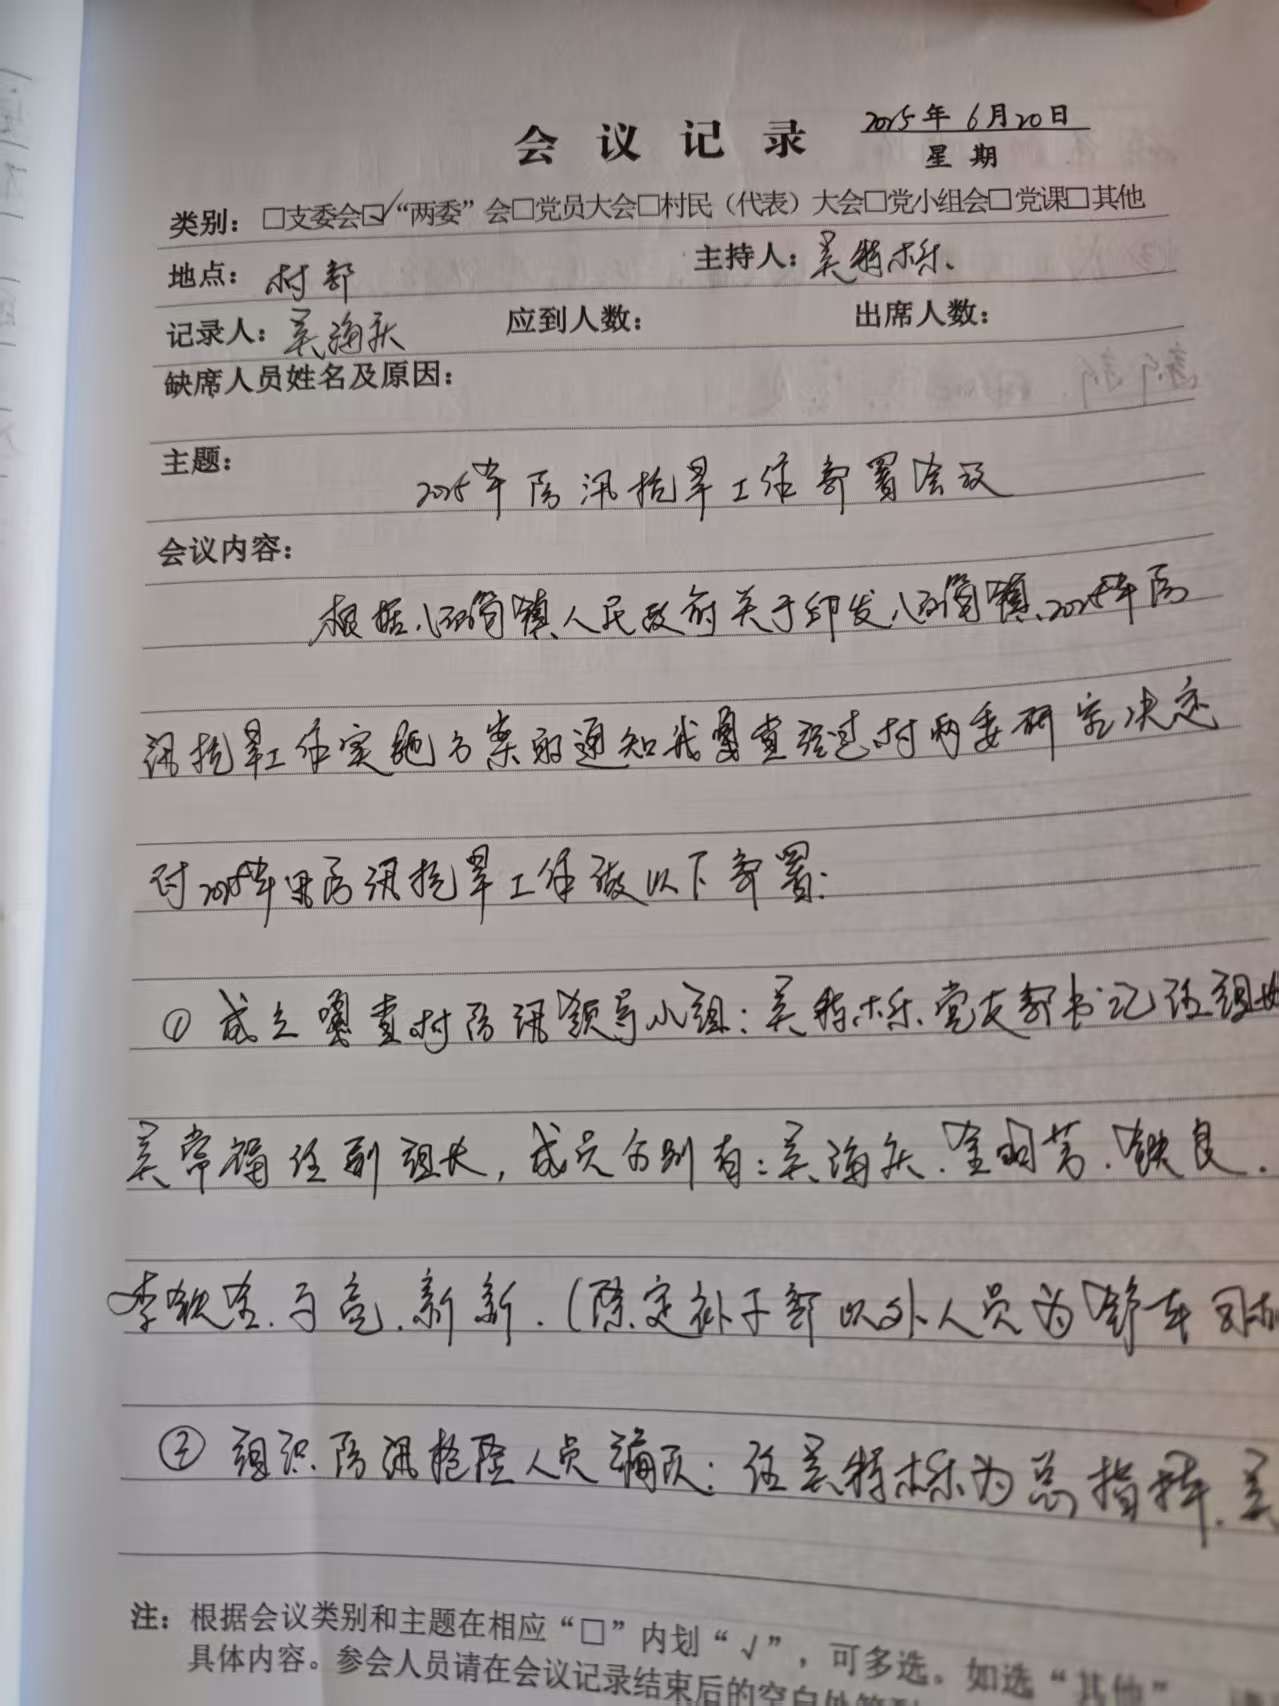 会议记录 2025年6月20日
星期
类别：□支委会☑“两委”会□党员大会□村民（代表）大会□党小组会□党课□其他
地点：村部 主持人：吴特木乐
记录人：吴海庆 应到人数： 出席人数：
缺席人员姓名及原因：
主题：
2025年防汛抗旱工作部署会议
会议内容：
根据八仙筒镇人民政府关于印发八仙筒镇2025年防
汛抗旱工作实施方案的通知我嘎查经过村两委研究决定
对2025年防汛抗旱工作做以下部署：
①成立嘎查村防汛领导小组：吴特木乐党支部书记任组长
吴常福任副组长，成员分别有：吴海庆、金明芳、铁良、
李铁金、于亮、新新、（除定补干部以外人员为铲车司机
②组织防汛抢险人员编队：任吴特木乐为总指挥、吴
注：根据会议类别和主题在相应“□”内划“√”，可多选。如选“其他”
具体内容。参会人员请在会议记录结束后的空白处签到